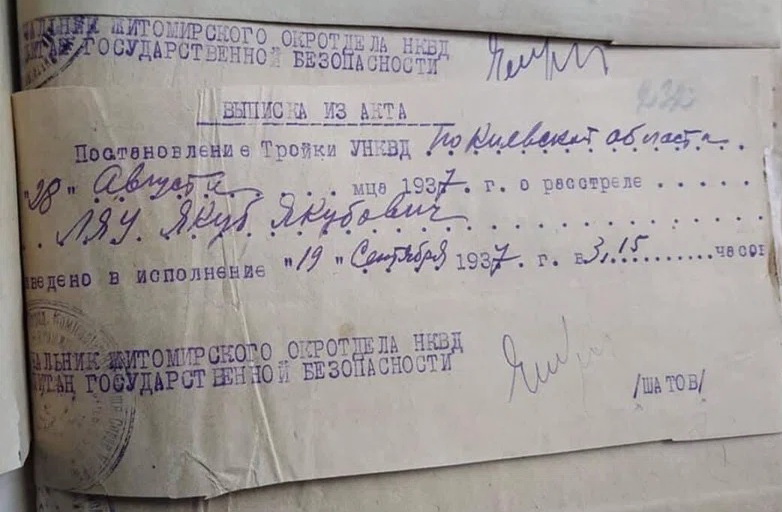 ЧАЛЬНИК ЖИТОМИРСКОГО ОКРОТДЕЛА НКВД
ИТАН ГОСУДАРСТВЕННОЙ БЕЗОПАСНОСТИ
232
ВЫПИСКА ИЗ АКТА
Постановление Тройки УНКВД по Киевской области
"28" Августа мца 1937. г. о расстреле
ЛЯУ Якуб Якубович
ведено в исполнение "19" Сентября 1937. г. в 3,15 часов
АЛЬНИК ЖИТОМИРСКОГО ОКРОТДЕЛА НКВД
ИТАН ГОСУДАРСТВЕННОЙ БЕЗОПАСНОСТИ
/ШАТОВ/